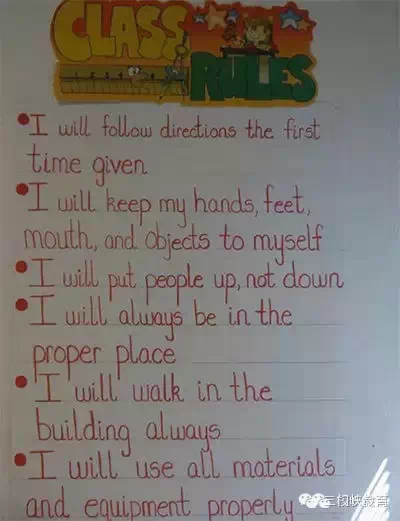 CLASS
RULES
I will follow directions the first
time given
I will keep my hands, feet,
mouth, and objects to myself
I will put people up, not down
I will always be in the
proper place
I will walk in the
building always
I will use all materials
and equipment properly
三棵映教育